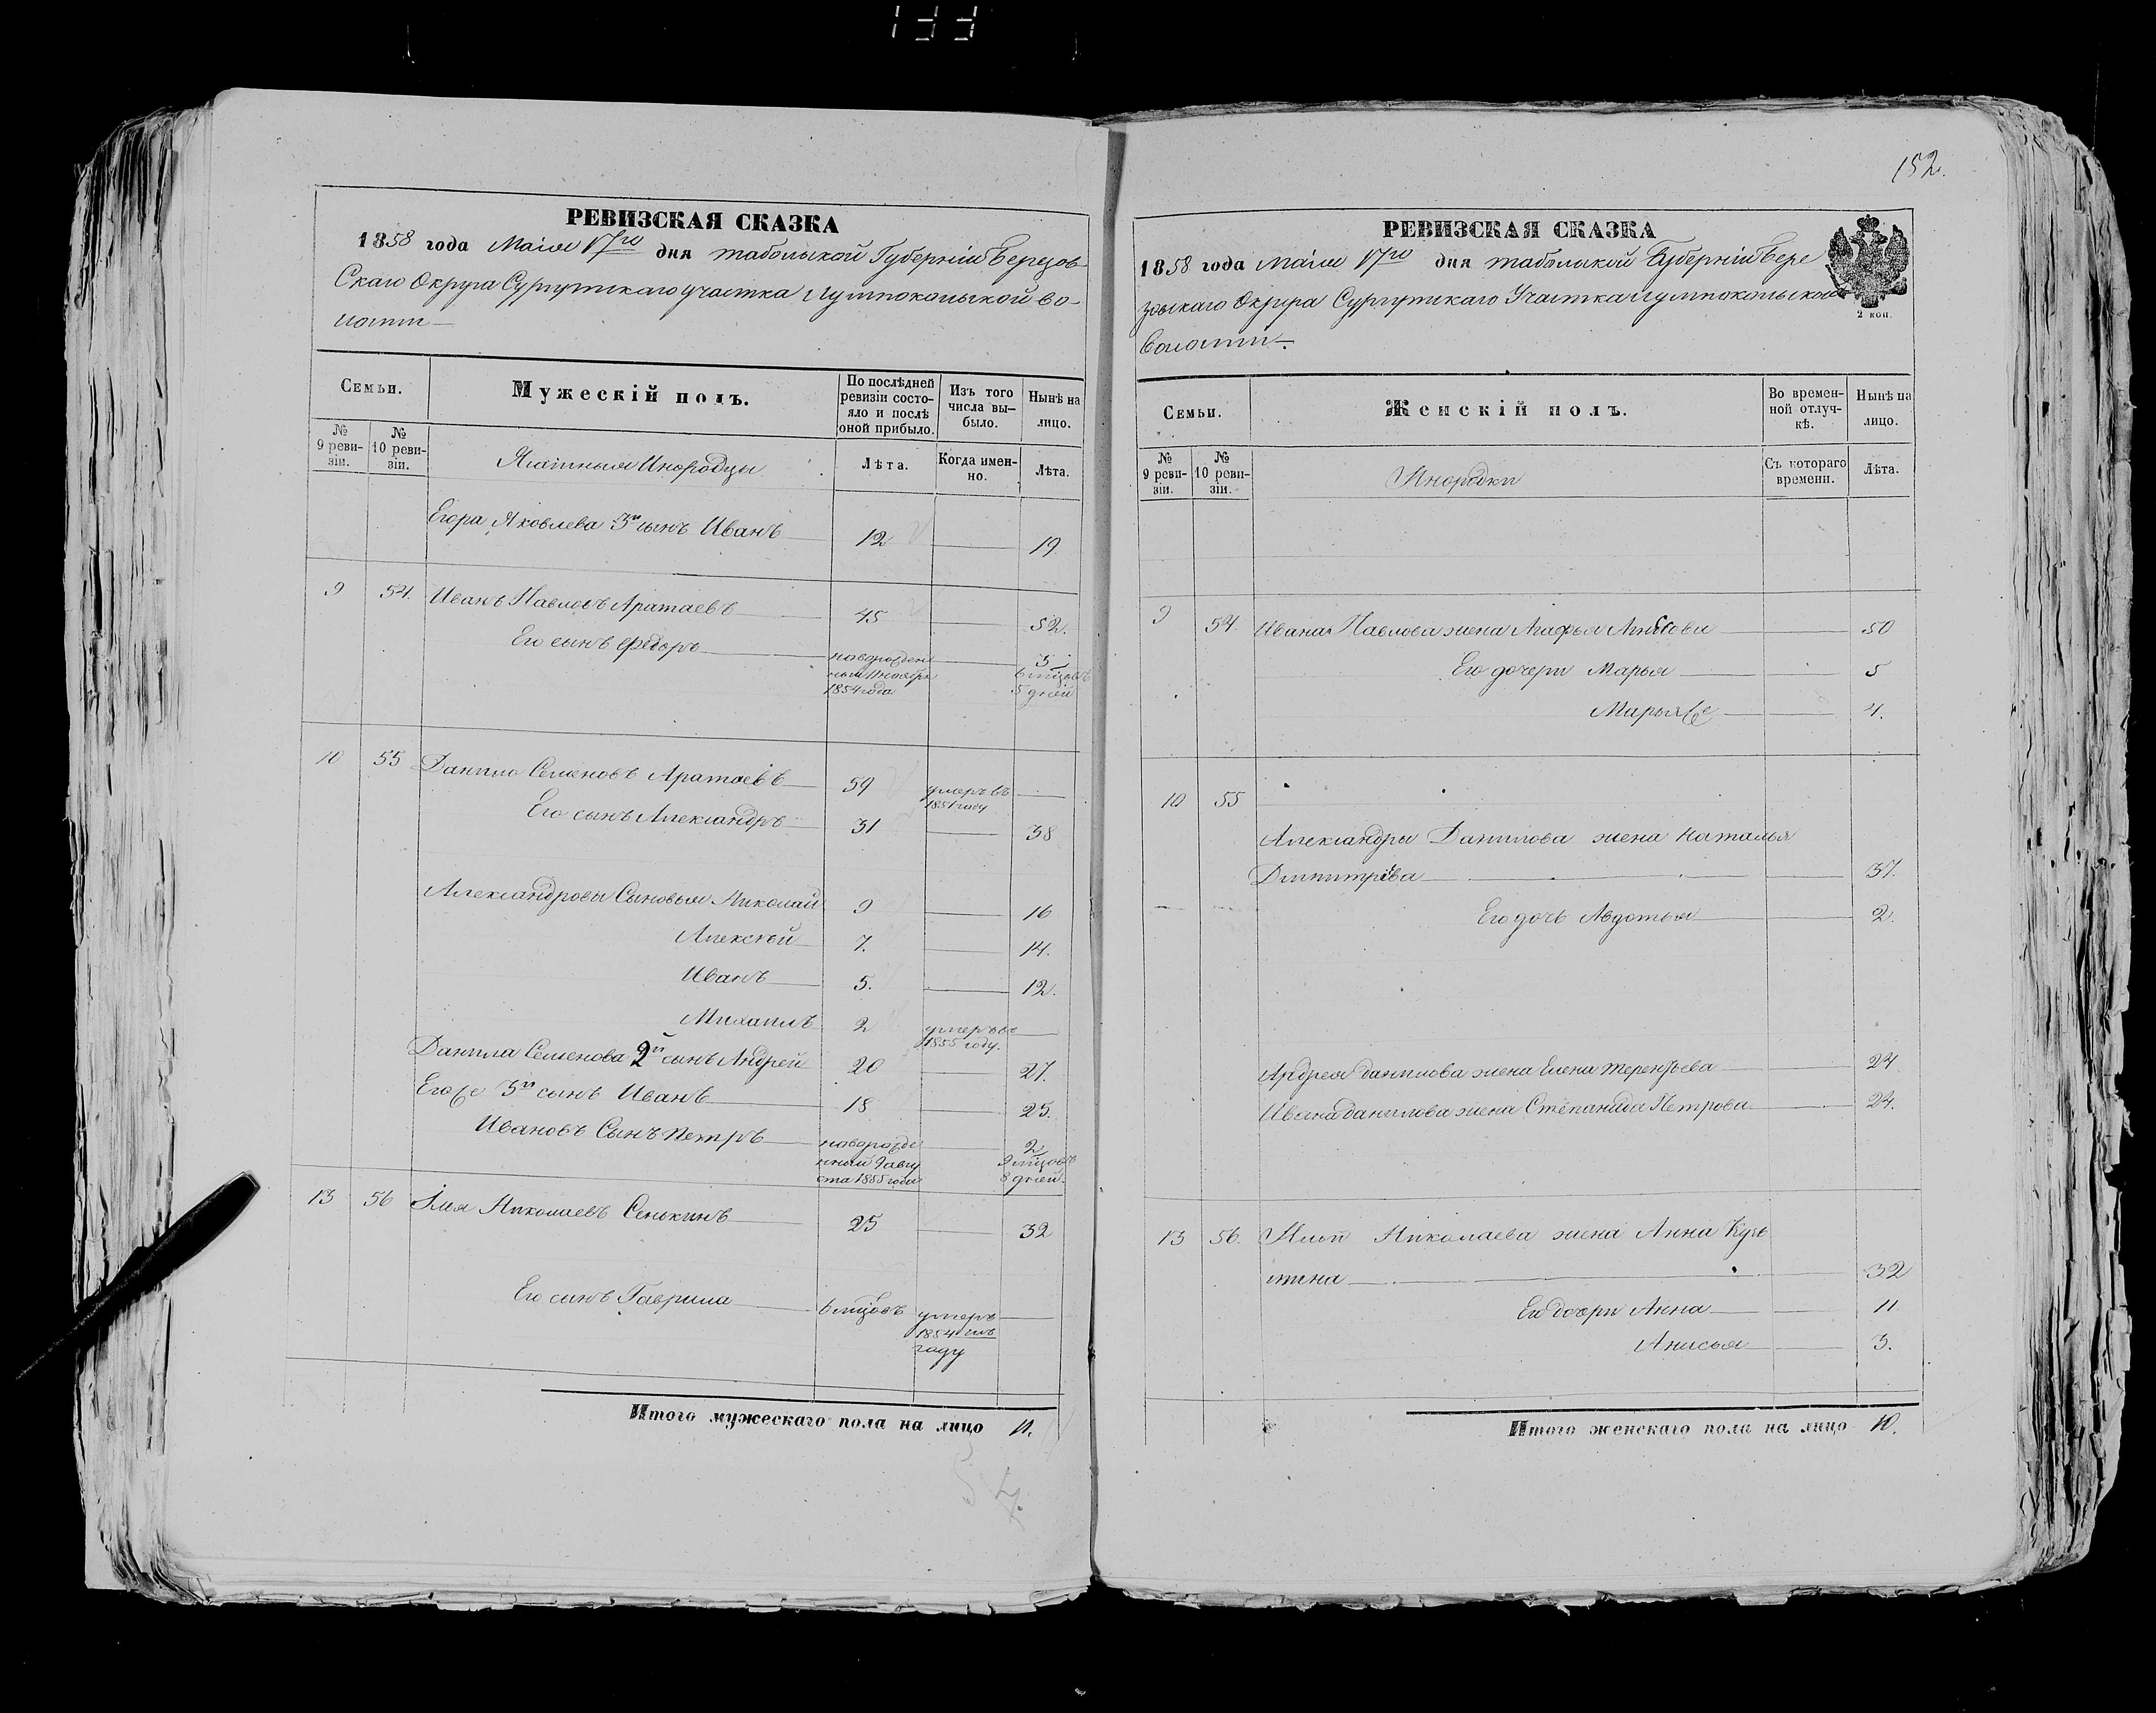 133
РЕВИЗСКАЯ СКАЗКА
1858 года Маія 17го дня табольской Губерніи Березов
Скаго Округа Сургутскаго участка Лумпокольской во-
лости
Семьи.
Мужескій полъ.
По послѣдней ревизіи состояло и послѣ оной прибыло.
Изъ того числа выбыло.
Нынѣ на лицо.
№ 9 ревизіи.
№ 10 ревизіи.
Ясашныя Инородцы
Лѣта.
Когда именно.
Лѣта.
Егора Яковлева 3й сынъ Иванъ 12 19
9 54. Иванъ Павловъ Аратаевъ 45 52.
Его сынъ Федоръ новорожден 3
ный 11 ноября 6 мцовъ
1854 года 5 дней
10 55 Данило Семеновъ Аратаевъ 59 умеръ въ
1851 году
Его сынъ Александръ 31 38
Александровы Сыновья Николай 9 16
Алексѣй 7. 14.
Иванъ 5. 12.
Михаилъ 2 умеръ въ
1855 году.
Данила Семенова 2й сынъ Андрей 20 27.
Егоже 3й сынъ Иванъ 18 25.
Ивановъ Сынъ Петръ новорожде 2
нный 9 авгу 9 мцовъ
ста 1855 года 8 дней.
13 56 Илия Николаевъ Сенькинъ 25 32
Его сынъ Гаврила 6 мцовъ умеръ
1854 мъ
году
Итого мужескаго пола на лицо 11.
152.
РЕВИЗСКАЯ СКАЗКА
1858 года Маія 17го дня табольской Губерніи Бере
зовскаго Округа Сургутскаго Участка Лумпокольской
Волости.
2 коп.
Семьи.
Женскій полъ.
Во временной отлучкѣ.
Нынѣ на лицо.
№ 9 ревизіи.
№ 10 ревизіи.
Инородки
Съ котораго времени.
Лѣта.
9 54. Ивана Павлова жена Агафья 50
Его дочери Марья 5
Марьяже 4.
10 55
Александры Данилова жена Наталья
Дмитріва 37.
Его дочь Авдотья 2.
Андрея данилова жена Елена терентьева 24
Ивана данилова жена Степанида Петрова 24.
13 56. Ильи Николаева жена Анна Кузь
мина 32
Его дочери Анна 11
Анисья 3.
Итого женскаго пола на лицо 10.